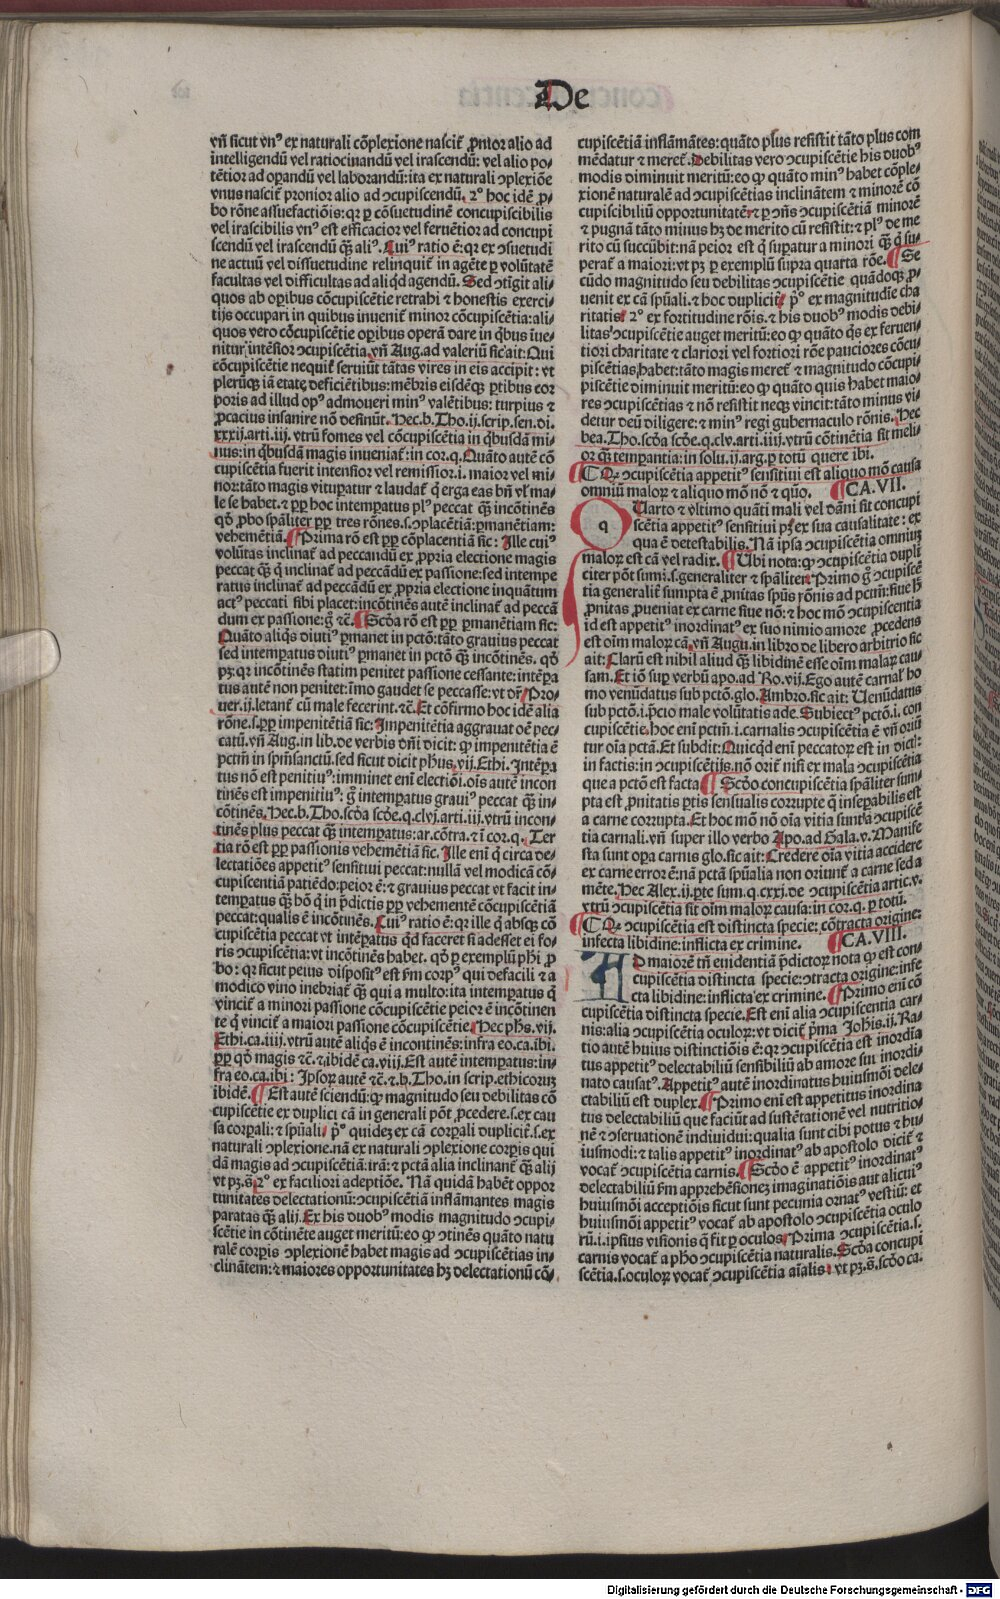 De
vñ sicut vnꝰ ex naturali cõplexione nascit̃ ꝓnior alio ad
intelligendũ vel ratiocinandũ vel irascendũ: vel alio po-
tẽtior ad oꝑandũ vel laborandũ: ita ex naturali ↄplexiõe
vnus nascit̃ pronior alio ad ↄcupiscendũ. 2º hoc idẽ ꝓ-
bo rõne assuefactiõis: qꝛ ꝑ cõsuetudinẽ concupiscibilis
vel irascibilis vnꝰ est efficacior vel feruẽtior ad concupi
scendũ vel irascendũ q̃ꝫ aliꝰ. Cuiꝰ ratio ẽ: qꝛ ex ↄsuetudi
ne actuũ vel dissuetudine relinquit̃ in agẽte ꝑ volũtatẽ
facultas vel difficultas ad aliq̇d agendũ. Sed ↄtigit ali-
quos ab oꝑibus cõcupiscẽtie retrahi ⁊ honestis exerci-
tijs occupari in quibus inuenit̃ minor cõcupiscẽtia: ali-
quos vero cõcupiscẽtie oꝑibus operã dare in q̇bus iue-
nitur intẽsior ↄcupiscẽtia. vñ Aug. ad valeriũ sic ait: Qui
cõcupiscẽtie nequit̃ seruiũt tãtas vires in eis accipit: vt
plerũqꝫ iã etatẽ deficiẽtibus: mẽbris eisdẽqꝫ ꝑtibus cor
poris ad illud opꝰ admoueri minꝰ valẽtibus: turpius ⁊
ꝓcacius insanire nõ definũt. Hec. b. Tho. ij. scrip. sen. di.
xxxij. arti. iij. vtrũ fomes vel cõcupiscẽtia in q̇busdã mi-
nus: in q̇busdã magis inueniat̃: in cor. q. Quãto autẽ cõ
cupiscẽtia fuerit intensior vel remissior. i. maior vel mi
nor: tãto magis vituꝑatur ⁊ laudat̃ q̇ erga eas bñ vl̓ ma-
le se habet. ⁊ ꝓꝑ hoc intemꝑatus plꝰ peccat q̃ꝫ incõtinẽs
qď ꝓbo spãliter ꝓꝑ tres rõnes. s. ↄplacẽtiã: ꝑmanẽtiam:
vehemẽtiã. ¶ Prima rõ est ꝓꝑ cõplacentiã sic: Ille cuiꝰ
volũtas inclinat̃ ad peccandũ ex ꝓpria electione magis
peccat q̃ꝫ q̇ inclinat̃ ad peccãdũ ex passione: sed intempe
ratus inclinat̃ ad peccãdũ ex ꝓpria electione inquãtum
actꝰ peccati sibi placet: incõtinẽs autẽ inclinat̃ ad peccã
dum ex passione: g̊ ⁊c̃. ¶ Scďa rõ est ꝓꝑ ꝑmanẽtiam sic:
Quãto aliq̇s diutiꝰ ꝑmanet in pctõ: tãto grauius peccat
sed intemꝑatus diutiꝰ ꝑmanet in pctõ q̃ꝫ incõtinẽs. qď
pꝫ: qꝛ incõtinẽs statim penitet passione cessante: intẽꝑa
tus autẽ non penitet: imo gaudet se peccasse: vt dr̃ Pro-
uer. ij. letant̃ cũ male fecerint. ⁊c̃. Et cõfirmo hoc idẽ alia
rõne. s. ꝓꝑ impenitẽtiã sic: Impenitẽtia aggrauat oẽ pec-
catũ. vñ Aug. in lib. de verbis dñi dicit: ꝙ impenitẽtia ẽ
pctm̃ in spm̃sanctũ. sed sicut dicit ph̓us. vij. Ethi. Intẽꝑa
tus nõ est penitiuꝰ: imminet eni electiõi. ois autẽ incon
tinẽs est impenitiuꝰ: g̊ intemꝑatus grauiꝰ peccat q̃ꝫ in-
cõtinẽs. Hec. b. Tho. scďa scďe. q. clvj. arti. iij. vtrũ incon-
tinẽs plus peccat q̃ꝫ intemꝑatus: ar. cõtra. ⁊ i cor. q. Ter
tia rõ est ꝓꝑ passionis vehemẽtiã sic. Ille eni q̇ circa de-
lectatiões appetitꝰ sensitiui peccat: nullã vel modicã cõ-
cupiscentiã patiẽdo: peior ẽ: ⁊ grauius peccat vt facit in-
temꝑatus q̃ꝫ hõ q̇ in p̃dictis ꝓꝑ vehementẽ cõcupiscẽtiã
peccat: qualis ẽ incõtinẽs. Cuiꝰ ratio ẽ: qꝛ ille q̇ absqꝫ cõ
cupiscẽtia peccat vt intẽꝑatus qd̓ faceret si adesset ei fo-
ris ↄcupiscẽtia: vt incõtinẽs habet. qď ꝑ exemplũ ph̓i ꝓ
bo: qꝛ sicut peius dispositꝰ est ẜm corpꝰ qui defacili ⁊ a
modico vino inebriat̃ q̃ꝫ qui a multo: ita intemꝑatus q̇
vincit̃ a minori passione cõcupiscẽtie peior ẽ incõtinen
te q̇ vincit̃ a maiori passione cõcupiscẽtie. ¶ Hec ph̓s. vij.
Ethi. ca. iiij. vtrũ autẽ aliq̇s ẽ incontinẽs: infra eo. ca. ibi.
ꝓꝑ qď magis ⁊c̃. ⁊ ibidẽ ca. viij. Est autẽ intemꝑatus: in-
fra eo. ca. ibi: Ipsoꝝ autẽ ⁊c̃. ⁊. b. Tho. in scrip. ethicorum
ibidẽ. ¶ Est autẽ sciendũ: ꝙ magnitudo seu debilitas cõ
cupiscẽtie ex duplici cã in generali põt ꝓcedere. s. ex cau
sa corꝑali: ⁊ spũali. pº quideꝫ ex cã corꝑali duplicit̃. s. ex
naturali ↄplexione. nã ex naturali ↄplexione corꝑis qui
dã magis ad ↄcupiscẽtiã: irã: ⁊ pctã alia inclinant̃ q̃ꝫ alij
vt pꝫ. s̃. 2º ex faciliori adeptiõe. Nã quidã habẽt oppor
tunitates delectationũ: ↄcupiscẽtiã inflãmantes magis
paratas q̃ꝫ alij. Ex his duobꝰ modis magnitudo ↄcupi-
scẽtie in cõtinẽte auget meritũ: eo ꝙ ↄtinẽs quãto natu
ralẽ corꝑis ↄplexionẽ habet magis ad ↄcupiscẽtias in-
clinãtem: ⁊ maiores opportunitates hꝫ delectationũ cõ-
cupiscẽtiã inflãmãtes: quãto plus resistit tãto plus com
mẽdatur ⁊ meret̃. Debilitas vero ↄcupiscẽtie his duobꝰ
modis diminuit meritũ: eo ꝙ quãto minꝰ habet cõple-
xionẽ naturalẽ ad ↄcupiscẽtias inclinãtem ⁊ minorẽ cõ
cupiscibiliũ opportunitatẽ: ⁊ ꝑ ↄñs ↄcupiscẽtiã minorẽ
⁊ pugnã tãto minus hꝫ de merito cũ resistit: ⁊ plꝰ de me
rito cũ succũbit: nã peior est q̇ suꝑatur a minori q̃ꝫ q̇ su-
perat̃ a maiori: vt pꝫ ꝑ exemplũ supra quarta rõe. ¶ Se
cũdo magnitudo seu debilitas ↄcupiscẽtie quãdoqꝫ ꝓ
uenit ex cã spũali. ⁊ hoc duplicit̃. pº ex magnitudie cha
ritatis. 2º ex fortitudine rõis. ⁊ his duobꝰ modis debi-
litas ↄcupiscẽtie auget meritũ: eo ꝙ quãto q̇s ex feruen-
tiori charitate ⁊ clariori vel fortiori rõe pauciores cõcu-
piscẽtias habet: tãto magis meret̃ ⁊ magnitudo cõcupi-
piscẽtie diminuit meritũ: eo ꝙ quãto quis habet maio-
res ↄcupiscẽtias ⁊ nõ resistit neqꝫ vincit: tãto minus vi-
detur deũ diligere: ⁊ minꝰ regi gubernaculo rõnis. Hec
bea. Tho. scďa scďe. q. clv. arti. iiij. vtrũ cõtinẽtia sit meli-
or q̃ꝫ temꝑantia: in solu. ij. arg. ꝑ totũ quere ibi.
¶ Qꝙ ↄcupiscẽtia appetitꝰ sensitiui est aliquo mõ causa
omniũ maloꝝ ⁊ aliquo mõ nõ ⁊ quõ. ¶ CA. VII.
q Uarto ⁊ vltimo quãti mali vel dãni sit concupi
scẽtia appetitꝰ sensitiui pꝫ ex sua causalitate: ex
qua ẽ detestabilis. Nã ipsa ↄcupiscẽtia omnium
maloꝝ est cã vel radix. ¶ Ubi nota: ꝙ ↄcupiscẽtia dupli
citer põt sumi. s. generaliter ⁊ spãliter. Primo g̊ ↄcupiscẽ
tia generalit̃ sumpta ẽ ꝓnitas spũs rõnis ad pctm̃: siue h̓
ꝓnitas ꝓueniat ex carne siue nõ: ⁊ hoc mõ ↄcupiscentia
id est appetitꝰ inordinatꝰ ex suo nimio amore ꝓcedens
est oim̃ maloꝝ cã. vñ Augu. in libro de libero arbitrio sic
ait: Clarũ est nihil aliud q̃ꝫ libidinẽ esse oim̃ malaꝝ cau-
sam. Et iõ suꝑ verbũ apo. ad Ro. vij. Ego autẽ carnal̓ ho
mo venũdatus sub pctõ. glo. Ambro. sic ait: Uenũdatus
sub pctõ. i. p̃cio male volũtatis ade. Subiectꝰ pctõ. i. con
cupiscẽtie, hoc eni pctm̃. i. carnalis ↄcupiscẽtia ẽ vñ oriũ
tur oia pctã. Et subdit: Quicq̇d eni peccatoꝝ est in dictis:
in factis: in ↄcupiscẽtijs. nõ orit̃ nisi ex mala ↄcupiscẽtia
que a pctõ est facta. ¶ Scďo concupiscẽtia spãliter sum-
pta est ꝓnitatis ꝑtis sensualis corrupte q̇ inseꝑabilis est
a carne corrupta. Et hoc mõ nõ oia vitia sunt a ↄcupiscẽ
tia carnali. vñ super illo verbo Apo. ad Gala. v. Manife
sta sunt oꝑa carnis glo. sic ait: Credere oia vitia accidere
ex carne error ẽ: nã pctã spũalia non oriunt̃ a carne sed a
mẽte. Hec Alex. ij. ꝑte sum. q. cxxi. de ↄcupiscẽtia artic. v.
vtrũ ↄcupiscẽtia sit oim̃ maloꝝ causa: in cor. q. ꝑ totũ.
¶ Qꝙ ↄcupiscẽtia est distincta specie: cõtracta origine:
infecta libidine: inflicta ex crimine. ¶ CA. VIII.
AD maiorẽ tñ euidentiã p̃dictoꝝ nota ꝙ est con-
cupiscẽtia distincta specie: ↄtracta origine: infe
cta libidine: inflicta ex crimine. ¶ Primo eni cõ
cupiscẽtia distincta specie. Est eni alia ↄcupiscentia car-
nis: alia ↄcupiscẽtia oculoꝝ: vt dicit̃ p̃ma Joh̓is. ij. Ra-
tio autẽ huius distinctiõis ẽ: qꝛ ↄcupiscẽtia est inordia
tus appetitꝰ delectabiliũ sensibiliũ ab amore sui inordi-
nato causatꝰ. Appetitꝰ autẽ inordinatus huiusmõi dele-
ctabiliũ est duplex. ¶ Primo eni est appetitus inordina
tus delectabiliũ que faciũt ad sustẽtationẽ vel nutritio-
nẽ ⁊ ↄseruationẽ indiuidui: qualia sunt cibi potus ⁊ hu-
iusmodi: ⁊ talis appetitꝰ inordinatꝰ ab apostolo dicit̃ ⁊
vocat̃ ↄcupiscẽtia carnis. ¶ Scďo ẽ appetitꝰ inordinatꝰ
delectabiliũ ẜm apprehẽsionez imaginatiõis aut alicuiꝰ
huiusmõi acceptiõis sicut sunt pecunia ornatꝰ vestiũ: et
huiusmõi appetitꝰ vocat̃ ab apostolo ↄcupiscẽtia oculo
rũ. i. ipsius visionis q̃ fit ꝑ oculos. Prima ↄcupiscẽtia. s.
carnis vocat̃ a ph̓o ↄcupiscẽtia naturalis. Scďa concupi
scẽtia. s. oculoꝝ vocat̃ ↄcupiscẽtia aialis. vt pꝫ. s̃. scďo ca.
Digitalisierung gefördert durch die Deutsche Forschungsgemeinschaft - DFG